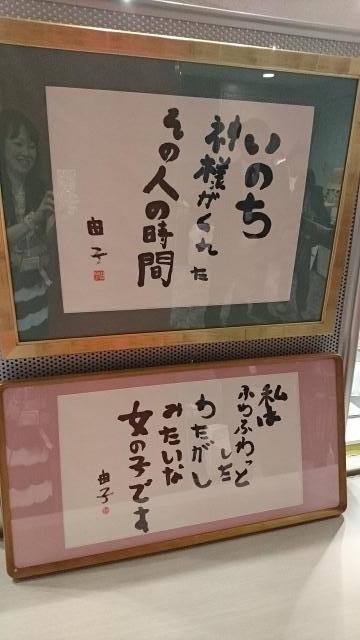 いのち
神様がくれた
その人の時間
由子
私は
ふわふわっと
した
わたがし
みたいな
女の子です
由子